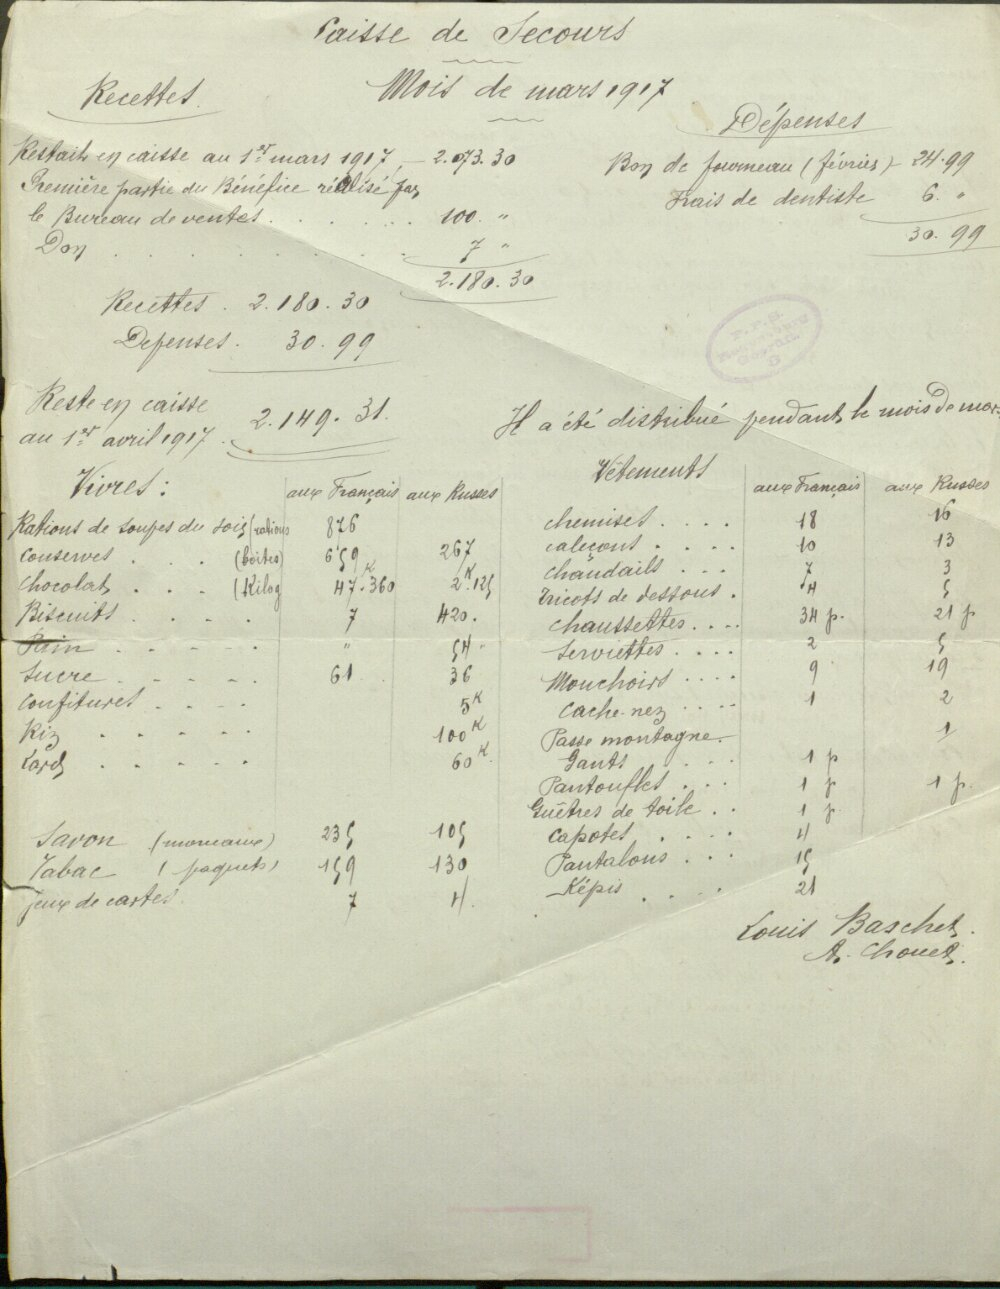 Caisse de Secours
Mois de mars 1917
Recettes.
Restait en caisse au 1er mars 1917 — 2.073.30
Première partie du Bénéfice réalisé par
le Bureau de ventes . . . . . . 100. "
Don . . . . . . . . 7 "
2.180.30
Recettes . 2.180.30
Depenses . 30.99
Reste en caisse
au 1er avril 1917 . 2.149.31.
Dépenses
Bon de fourneau (février) — 24.99
Frais de dentiste 6. "
30.99
Il a été distribué pendant le mois de mars
Vivres : aux Français aux Russes
Rations de soupes du soir (rations 876
Conserves . . . (boites) 659 267
Chocolat . . . (Kilog 47K.360 2K.125
Biscuits . . . . 7 420.
Pain . . . . . " 54 "
Sucre . . . . . 61 36
Confitures . . . . 5K
Riz . . . . . 100K
Lard . . . . . 60K.
Savon (morceaux) 235 105
Tabac (paquets) 159 130
Jeux de cartes 7 4
Vêtements aux Français aux Russes
Chemises . . . . 18 16
Caleçons . . . . 10 13
Chandails . . . 7 3
Tricots de dessous . 4 5
Chaussettes . . . . 34 p. 21 p
Serviettes . . . . 2 5
Mouchoirs . . . . 9 19
Cache-nez . . . . 1 2
Passe montagne . 1
Gants . . . 1 p
Pantoufles . . . 1 p 1 p.
Guêtres de toile . . 1 p.
Capotes . . . . 4
Pantalons . . . 15
Képis . . . 21
Louis Baschet.
A. Chouet.